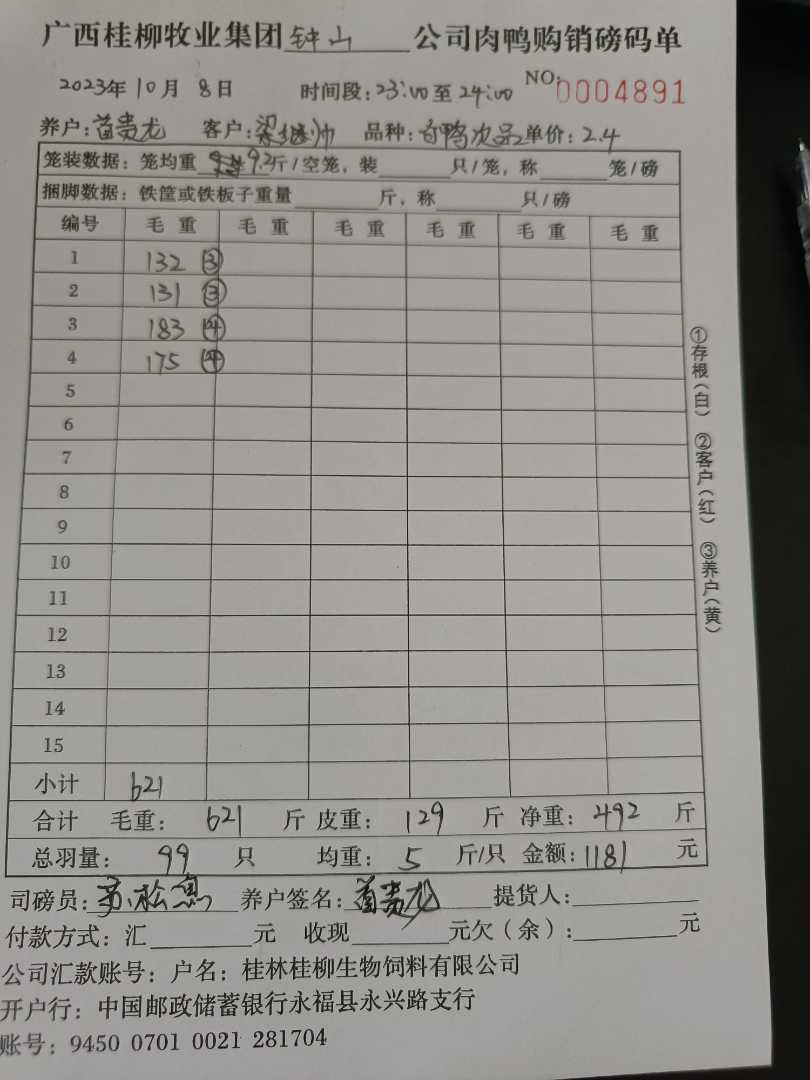 广西桂柳牧业集团钟山公司肉鸭购销磅码单
2023年10月8日 时间段:23:00至24:00 NO:0004891
养户:首贵龙 客户:梁继帅 品种:白鸭次品 单价:2.4
笼装数据:笼均重 9.2斤/空笼,装 只/笼,称 笼/磅
捆脚数据:铁筐或铁板子重量 斤,称 只/磅
编号 毛重 毛重 毛重 毛重 毛重 毛重
1 132 ③
2 131 ③
3 183 ④
4 175 ④
5
6
7
8
9
10
11
12
13
14
15
小计 621
合计 毛重: 621 斤 皮重: 129 斤 净重: 492 斤
总羽量: 99 只 均重: 5 斤/只 金额: 1181 元
司磅员: 养户签名:首贵龙 提货人:
付款方式:汇 元 收现 元欠(余): 元
公司汇款账号:户名:桂林桂柳生物饲料有限公司
开户行:中国邮政储蓄银行永福县永兴路支行
账号:9450 0701 0021 281704
①存根(白) ②客户(红) ③养户(黄)